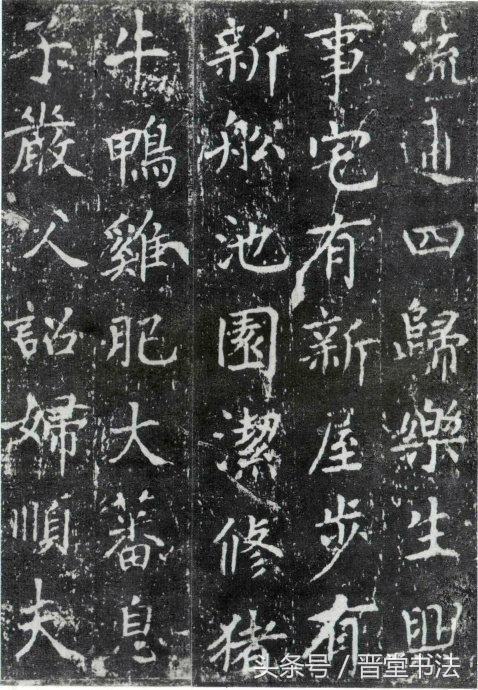 流逋四歸樂生興
事宅有新屋步有
新舩池園潔修猪
牛鴨雞肥大蕃息
子嚴父詔婦順夫
头条号 / 晋堂书法